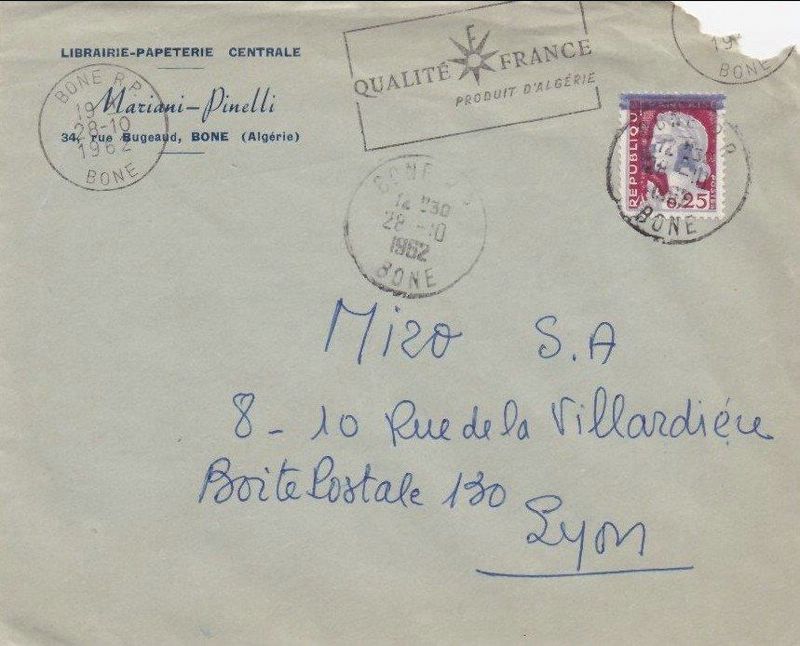 LIBRAIRIE-PAPETERIE CENTRALE
Mariani-Pinelli
34, rue Bugeaud, BONE (Algérie)
BONE R.P.
19
28-10
1962
BONE
QUALITÉ FRANCE
PRODUIT D'ALGÉRIE
19
BONE
REPUBLIQUE
0,25
28
BONE
BONE
12 H30
28-10
1962
BONE
Mizo S.A
8-10 Rue de la Villardiére
Boite Postale 130
Lyon